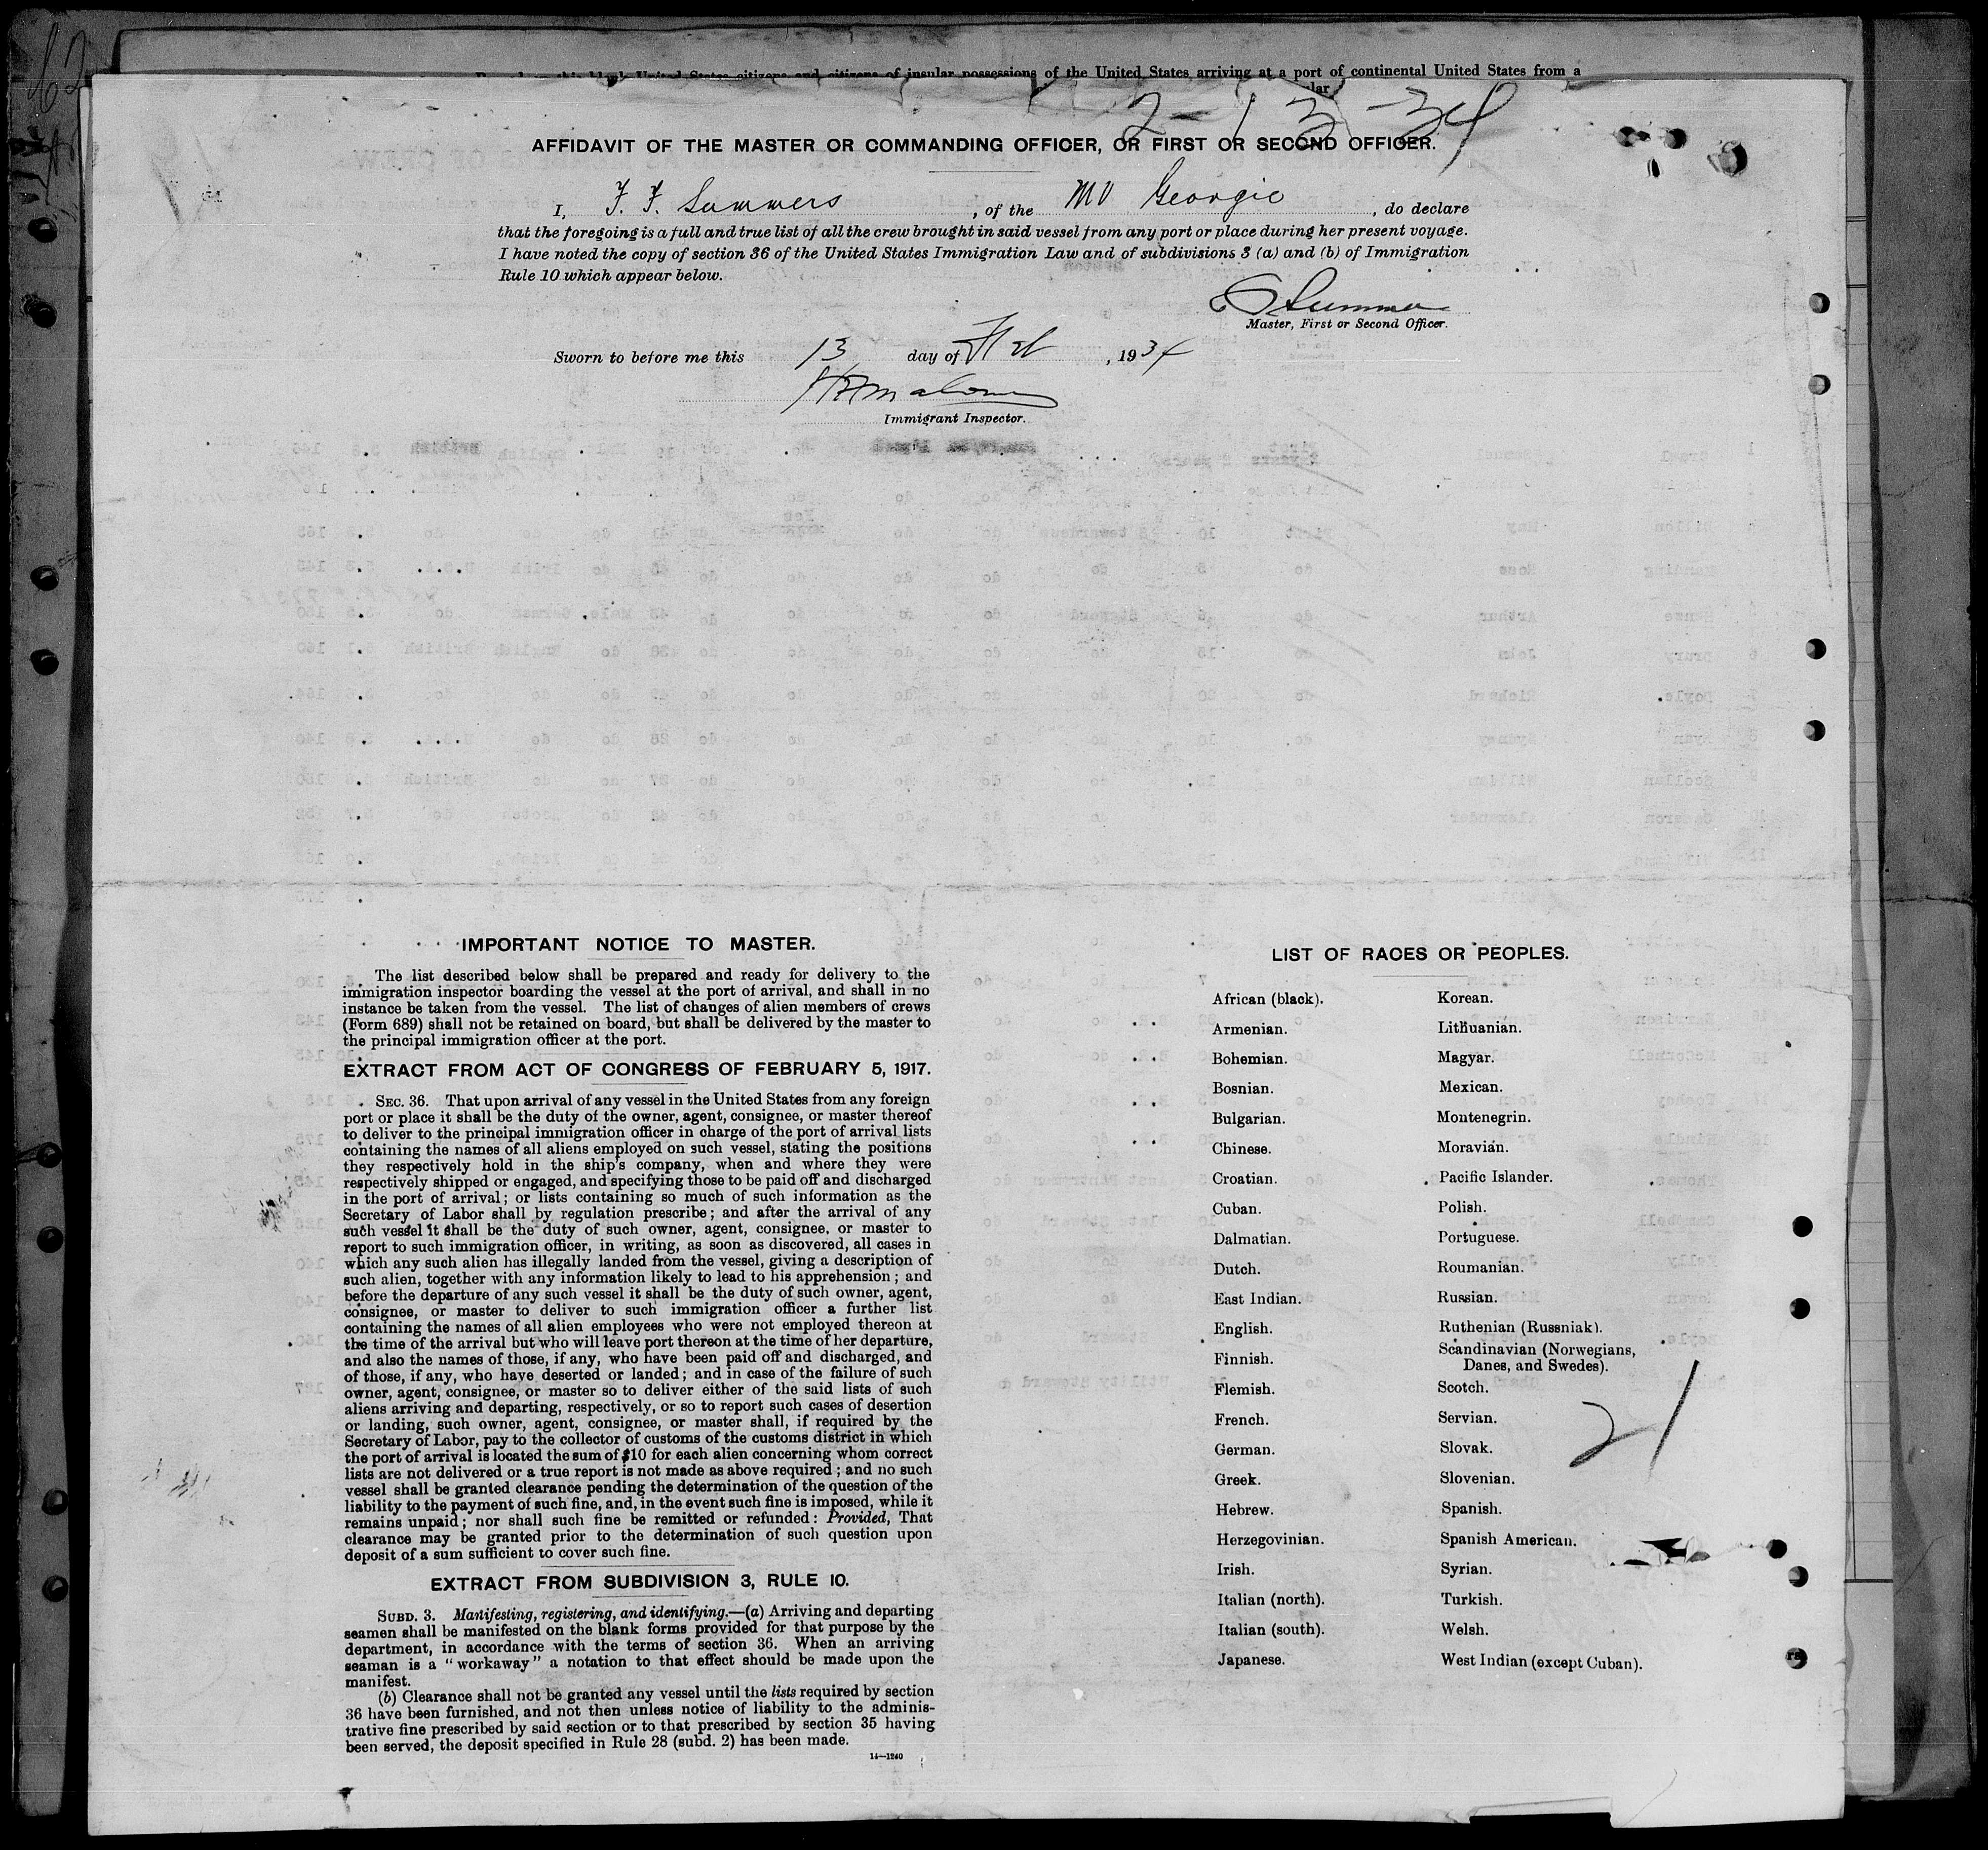 Readers this blank United States citizens and citizens of insular possessions of the United States arriving at a port of continental United States from a
2-13-34
AFFIDAVIT OF THE MASTER OR COMMANDING OFFICER, OR FIRST OR SECOND OFFICER.
I, F. F. Summers, of the MV Georgic, do declare
that the foregoing is a full and true list of all the crew brought in said vessel from any port or place during her present voyage.
I have noted the copy of section 36 of the United States Immigration Law and of subdivisions 3 (a) and (b) of Immigration
Rule 10 which appear below.
Master, First or Second Officer.
Sworn to before me this 13 day of Feb, 1934
Immigrant Inspector.
IMPORTANT NOTICE TO MASTER.
The list described below shall be prepared and ready for delivery to the
immigration inspector boarding the vessel at the port of arrival, and shall in no
instance be taken from the vessel. The list of changes of alien members of crews
(Form 689) shall not be retained on board, but shall be delivered by the master to
the principal immigration officer at the port.
EXTRACT FROM ACT OF CONGRESS OF FEBRUARY 5, 1917.
SEC. 36. That upon arrival of any vessel in the United States from any foreign
port or place it shall be the duty of the owner, agent, consignee, or master thereof
to deliver to the principal immigration officer in charge of the port of arrival lists
containing the names of all aliens employed on such vessel, stating the positions
they respectively hold in the ship's company, when and where they were
respectively shipped or engaged, and specifying those to be paid off and discharged
in the port of arrival; or lists containing so much of such information as the
Secretary of Labor shall by regulation prescribe; and after the arrival of any
such vessel it shall be the duty of such owner, agent, consignee, or master to
report to such immigration officer, in writing, as soon as discovered, all cases in
which any such alien has illegally landed from the vessel, giving a description of
such alien, together with any information likely to lead to his apprehension; and
before the departure of any such vessel it shall be the duty of such owner, agent,
consignee, or master to deliver to such immigration officer a further list
containing the names of all alien employees who were not employed thereon at
the time of the arrival but who will leave port thereon at the time of her departure,
and also the names of those, if any, who have been paid off and discharged, and
of those, if any, who have deserted or landed; and in case of the failure of such
owner, agent, consignee, or master so to deliver either of the said lists of such
aliens arriving and departing, respectively, or so to report such cases of desertion
or landing, such owner, agent, consignee, or master shall, if required by the
Secretary of Labor, pay to the collector of customs of the customs district in which
the port of arrival is located the sum of $10 for each alien concerning whom correct
lists are not delivered or a true report is not made as above required; and no such
vessel shall be granted clearance pending the determination of the question of the
liability to the payment of such fine, and, in the event such fine is imposed, while it
remains unpaid; nor shall such fine be remitted or refunded: Provided, That
clearance may be granted prior to the determination of such question upon
deposit of a sum sufficient to cover such fine.
EXTRACT FROM SUBDIVISION 3, RULE 10.
SUBD. 3. Manifesting, registering, and identifying.—(a) Arriving and departing
seamen shall be manifested on the blank forms provided for that purpose by the
department, in accordance with the terms of section 36. When an arriving
seaman is a "workaway" a notation to that effect should be made upon the
manifest.
(b) Clearance shall not be granted any vessel until the lists required by section
36 have been furnished, and not then unless notice of liability to the adminis-
trative fine prescribed by said section or to that prescribed by section 35 having
been served, the deposit specified in Rule 28 (subd. 2) has been made.
14—1240
LIST OF RACES OR PEOPLES.
African (black).
Armenian.
Bohemian.
Bosnian.
Bulgarian.
Chinese.
Croatian.
Cuban.
Dalmatian.
Dutch.
East Indian.
English.
Finnish.
Flemish.
French.
German.
Greek.
Hebrew.
Herzegovinian.
Irish.
Italian (north).
Italian (south).
Japanese.
Korean.
Lithuanian.
Magyar.
Mexican.
Montenegrin.
Moravian.
Pacific Islander.
Polish.
Portuguese.
Roumanian.
Russian.
Ruthenian (Russniak).
Scandinavian (Norwegians,
Danes, and Swedes).
Scotch.
Servian.
Slovak.
Slovenian.
Spanish.
Spanish American.
Syrian.
Turkish.
Welsh.
West Indian (except Cuban).
21